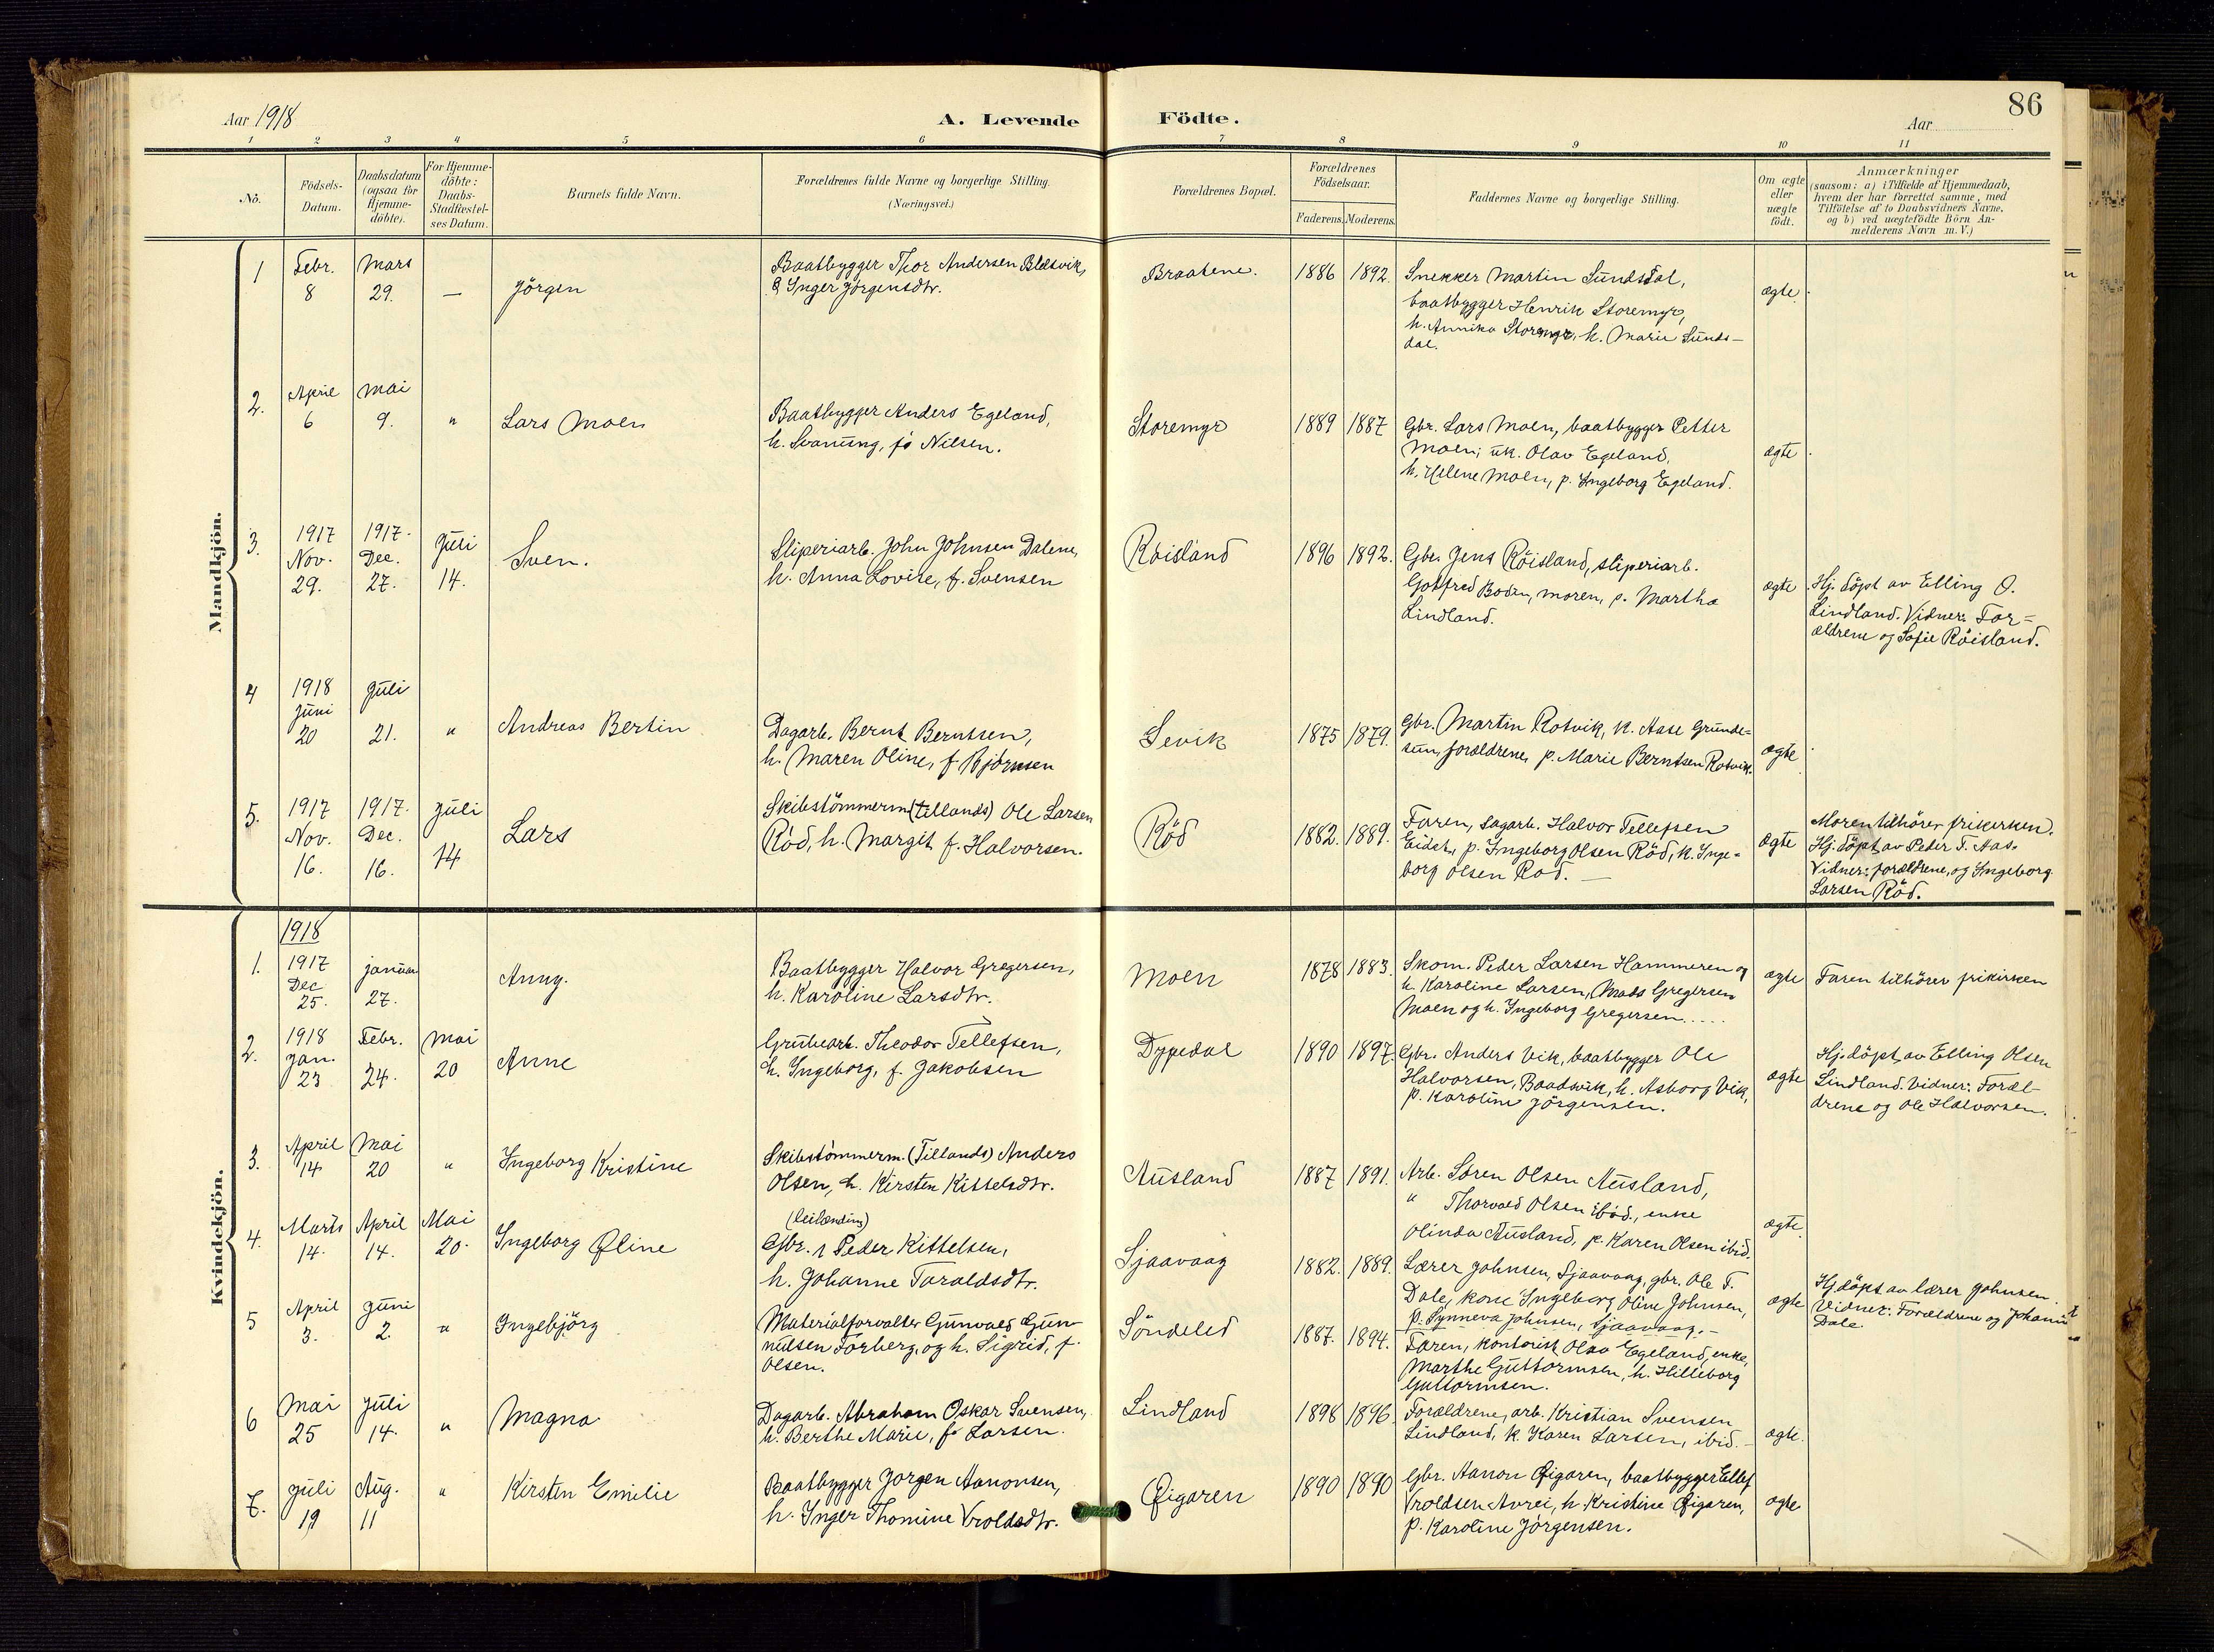 86
Aar 1918
A. Levende Födte.
Aar
1 2 3 4 5 6 7 8 9 10 11
No.
Födsels-Datum.
Daabsdatum (ogsaa for Hjemme-döbte).
For Hjemme-döbte: Daabs-Stadfæstel-ses Datum.
Barnets fulde Navn.
Forældrenes fulde Navne og borgerlige Stilling.
(Næringsvei.)
Forældrenes Bopæl.
Forældrenes Födselsaar.
Faderens. Moderens.
Faddernes Navne og borgerlige Stilling.
Om ægte eller uægte födt.
Anmærkninger
(saasom: a) i Tilfælde af Hjemmedaab,
hvem der har forrettet samme, med
Tilföielse af to Daabsvidners Navne,
og b) ved uægtefödte Börn An-
melderens Navn m. V.)
Mandkjön.
1 Febr. 8 Mars 29. — Jörgen
Baatbygger Thor Andersen Blåsvik,
& Inger Jörgensdtr.
Braatene. 1886 1892.
Snekker Martin Sundsdal,
baatbygger Henrik Storemyr,
h. Annika Storemyr, k. Marie Sunds-
dal.
ægte.
2. April 6 Mai 9. " Lars Moen
Baatbygger Anders Egeland,
h. Svanung, fö Nilsen.
Storemyr 1889 1887
Gbr. Lars Moen, baatbygger Petter
Moen, uk. Olav Egeland,
h. Helene Moen, p. Ingeborg Egeland.
ægte
3. 1917 Nov. 29. 1917. Dec. 27. Juli 14. Sven.
Sliperiarb. John Johnsen Dalene,
h. Anna Lovise, f. Svensen
Röisland 1896 1892.
Gbr. Jens Röisland, sliperiarb.
Gotfred Boden, moren, p. Martha
Lindland.
ægte
Hj. döpt av Elling O.
Lindland. Vidner: For=
ældrene og Sofie Röisland.
4 1918 Juni 20 Juli 21. " Andreas Bertin
Dagarb. Bernt Berntsen,
h. Maren Oline, f Björnsen
Sevik 1875 1879.
Gbr. Martin Rotvik, k. Aase Grunde=
sun, forældrene, p. Marie Berntsen Rotvik.
ægte
5. 1917 Nov. 16. 1917. Dec. 16. Juli 14 Lars
Skibstömmerm (tillands) Ole Larsen
Röd, h. Margit f. Halvorsen.
Röd 1882. 1889.
Faren, dagarb. Halvor Tellefsen
Eidet, p. Ingeborg Olsen Röd, k. Inge=
borg Olsen Röd. —
ægte
Moren tilhörer frikirken.
Hj. döpt av Peder T. Aas.
Vidner: forældrene, og Ingeborg
Larsen Röd.
Kvindekjön.
1918
1. 1917 Dec 25. januar 27. Anny.
Baatbygger Halvor Gregersen,
h. Karoline Larsdtr.
Moen 1878 1883.
Skom. Peder Larsen Hammeren og
h. Karoline Larsen, Mads Gregersen
Moen og h. Ingeborg Gregersen.....
ægte
Faren tilhörer frikirken
2. 1918 Jan. 23 Febr. 24. Mai 20 Anne
Grubearb. Theodor Tellefsen,
h. Ingeborg, f. Jakobsen
Dypedal 1890 1897.
Gbr. Anders Vik, baatbygger Ole
Halvorsen, Baadsvik, h. Asborg Vik,
p. Karoline Jörgensen.
ægte
Hj. döpt av Elling Olsen
Lindland. Vidner: Foræl-
drene og Ole Halvorsen.
3. April 14 Mai 20 " Ingeborg Kristine
Skibstömmerm. (Tillands) Anders
Olsen, h. Kirsten Kittelsdtr.
Ausland 1887 1891.
Arb. Sören Olsen Ausland,
" Thorvald Olsen ibid., enke
Olinda Ausland, p. Karen Olsen ibid.
ægte.
4. Marts 14. April 14. Mai 20. Ingeborg Oline
(leilænding)
Gbr. Peder Kittelsen,
h. Johanne Taraldsdtr.
Sjaavaag 1882. 1889.
Lærer Johnsen, Sjaavaag, gbr. Ole T.
Dale, kone Ingeborg Oline Johnsen,
p. Synneva Johnsen, Sjaavaag.-
ægte
Hj. döpt av lærer Johnsen.
Vidner: Forældrene og Johanne
Dale.
5 April 3. Juni 2. " Ingebjörg
Materialforvalter Gunvald Gun-
nulsen Forberg, og h. Sigrid, f.
Olsen.
Söndeled 1887. 1894.
Faren, kontorist Olav Egeland, enke,
Marthe Guttormsen, h. Hilleborg
Guttormsen.
6 Mai 25 Juli 14. " Magna
Dagarb. Abraham Oskar Svensen,
h. Berthe Marie, f. Larsen.
Lindland 1898 1896.
Forældrene, arb. Kristian Svensen
Lindland, k. Karen Larsen, ibid.-
ægte.
7. Juli 19 Aug. 11 " Kirsten Emilie
Baatbygger Jörgen Aanonsen,
h. Inger Thomine Vroldsdtr.
Öigaren 1890 1890
Gbr. Aanon Öigaren, baatbygger Ellef
Vroldsen Avrei, h Kristine Öigaren,
p. Karoline Jörgensen.
ægte